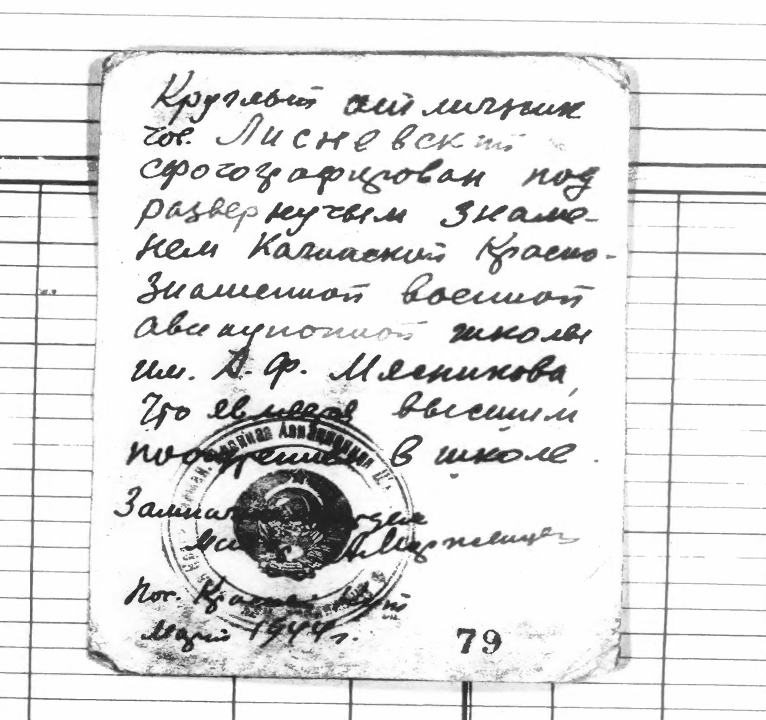 Круглый отличник
тов. Лисневский
сфотографирован под
развернутым знаме-
нем Качинской Красно-
знаменной военной
авиационной школы
им. А.Ф. Мясникова,
Что является высшим
поощрением в школе.
Майор
Пос. Красный Кут
Март 1944 г.
79